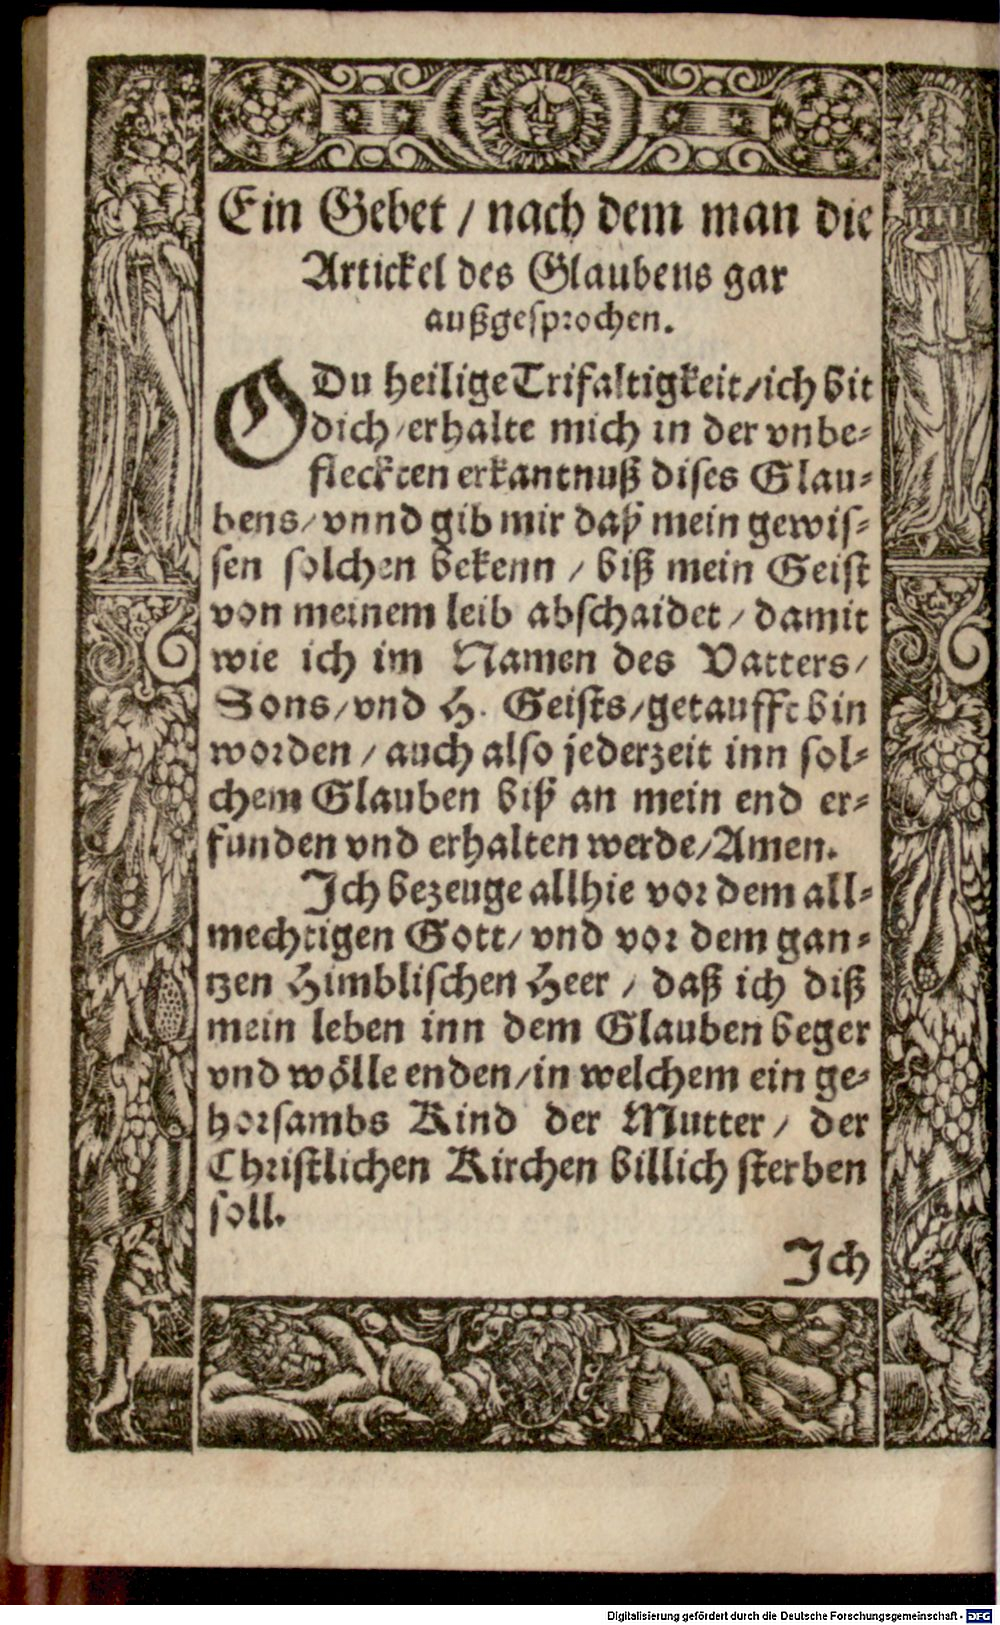 Ein Gebet / nach dem man die
Artickel des Glaubens gar
außgesprochen.
O Du heilige Trifaltigkeit / ich bit
dich / erhalte mich in der vnbe-
fleckten erkantnuß dises Glau-
bens / vnnd gib mir daß mein gewis-
sen solchen bekenn / biß mein Geist
von meinem leib abschaidet / damit
wie ich im Namen des Vatters /
Sons / vnd H. Geists / getaufft bin
worden / auch also jederzeit inn sol-
chem Glauben biß an mein end er-
funden vnd erhalten werde / Amen.
Ich bezeuge allhie vor dem all-
mechtigen Gott / vnd vor dem gan-
tzen Himblischen Heer / daß ich diß
mein leben inn dem Glauben beger
vnd wölle enden / in welchem ein ge-
horsambs Kind der Mutter / der
Christlichen Kirchen billich sterben
soll.
Ich
Digitalisierung gefördert durch die Deutsche Forschungsgemeinschaft - DFG